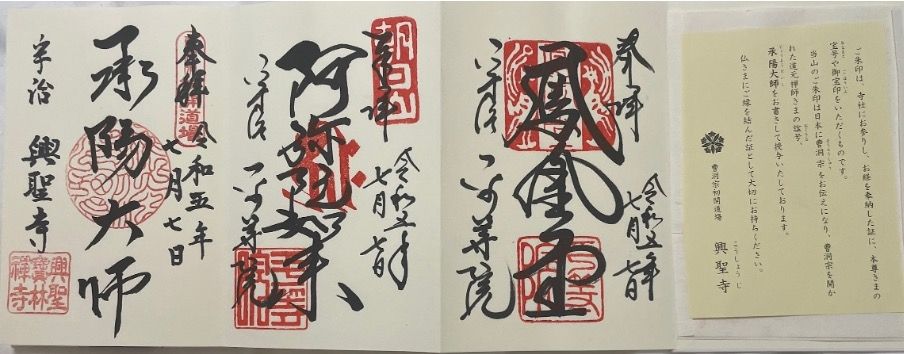 ご朱印は、寺社にお参りし、お経を奉納した証に、本尊さまの
宝号や御宝印をいただくものです。
当山のご朱印は日本に曹洞宗をお伝えになり、曹洞宗を開か
れた道元禅師さまの諡号、
承陽大師をお書きして授与いたしております。
仏さまにご縁を結んだ証として大切にお持ちください。
曹洞宗初開道場
興聖寺
こうしょうじ
奉拝
令和五年
七月七日
鳳凰堂
平等院
朝日山
奉拝
令和五年
七月七日
阿弥陀如来
平等院
奉拝
道場
令和五年
七月七日
承陽大師
宇治 興聖寺
興聖
寳林
禅寺